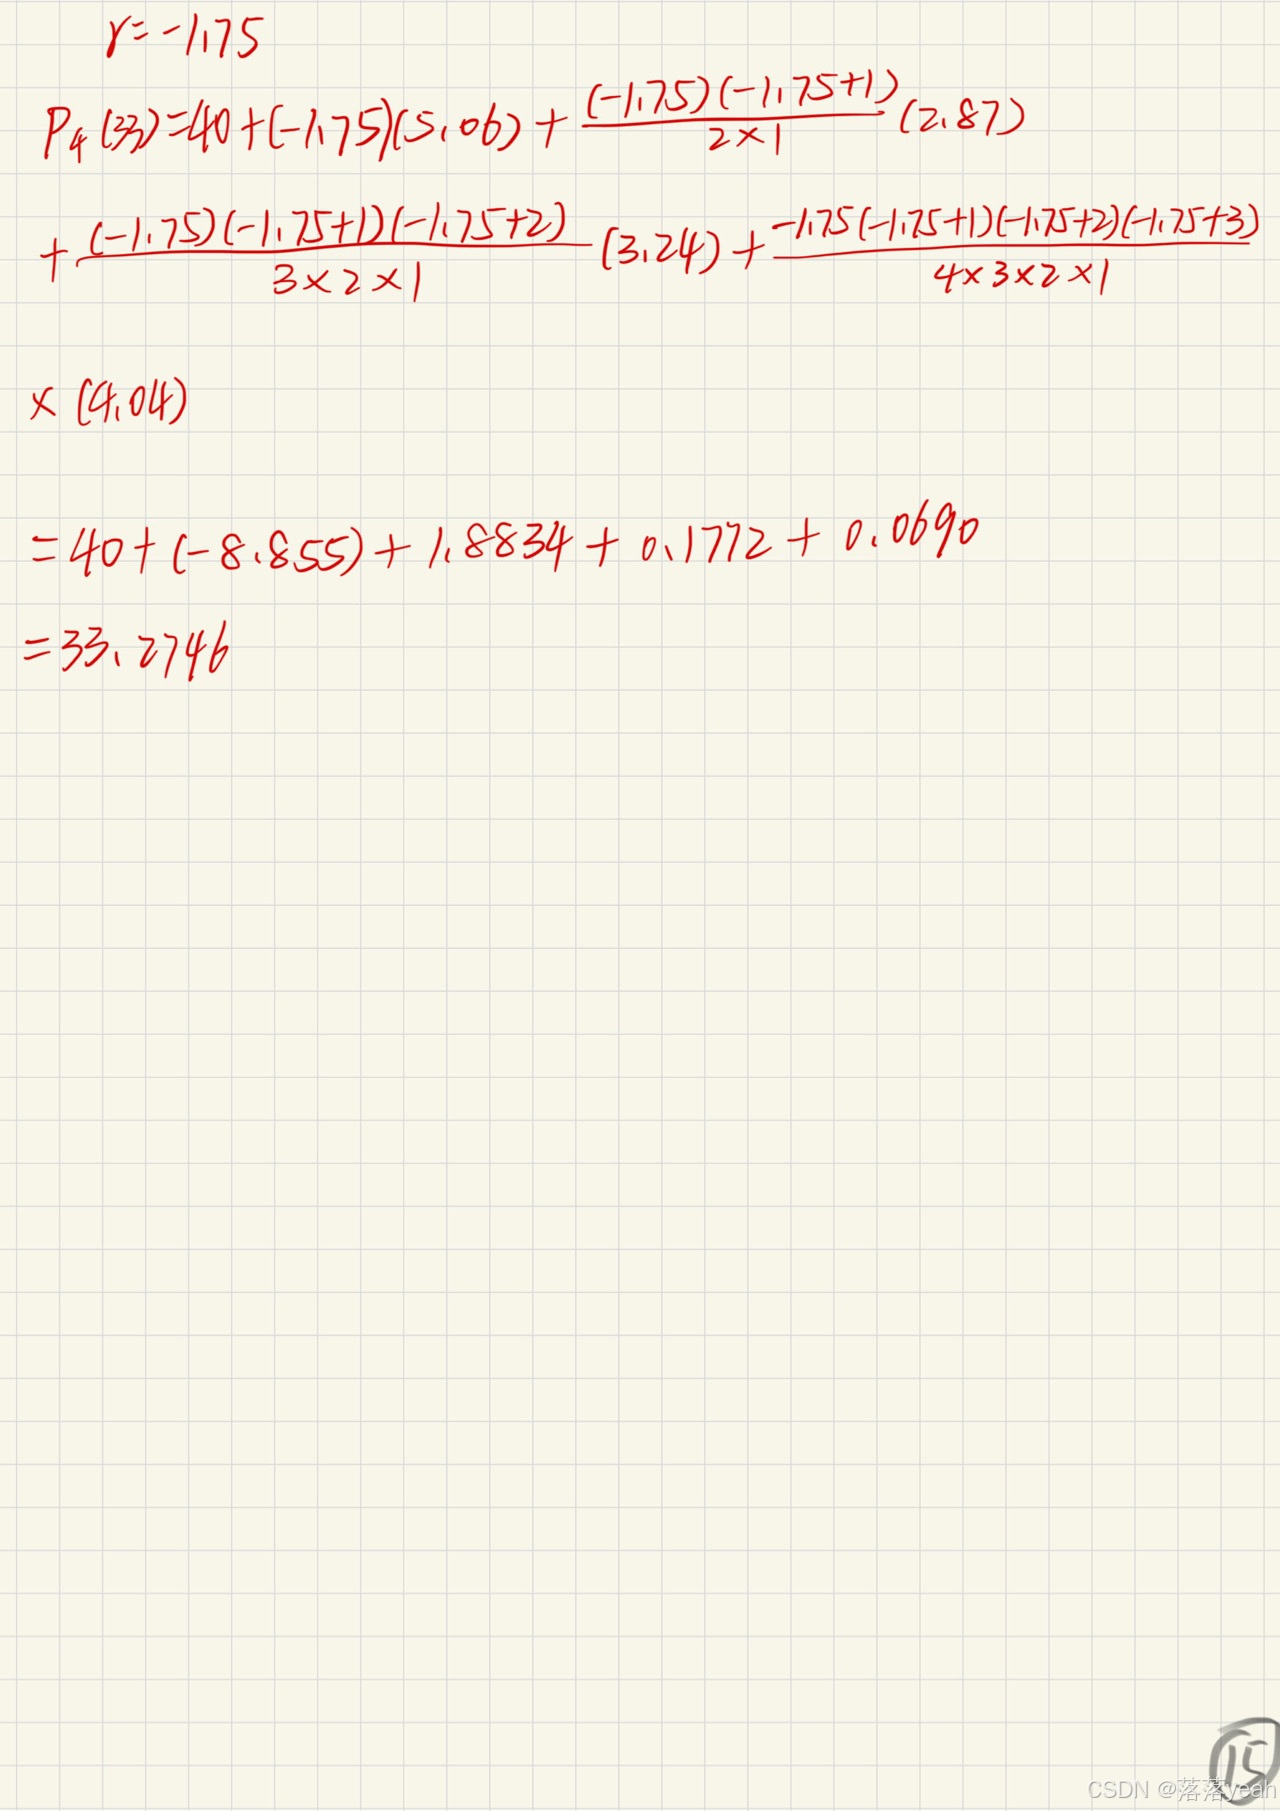 r=-1.75
P₄(33)=40+(-1.75)(5.06)+\frac{(-1.75)(-1.75+1)}{2×1}(2.87)
+\frac{(-1.75)(-1.75+1)(-1.75+2)}{3×2×1}(3.24)+\frac{-1.75(-1.75+1)(-1.75+2)(-1.75+3)}{4×3×2×1}
×(4.04)
=40+(-8.855)+1.8834+0.1772+0.0690
=33.2746
15
CSDN @落落yeah